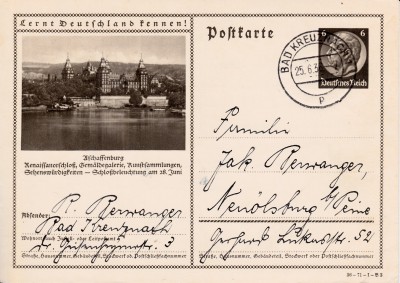 Lernt Deutschland kennen!
Aschaffenburg
Renaissanceschloß, Gemäldegalerie, Kunstsammlungen,
Sehenswürdigkeiten – Schloßbeleuchtung am 28. Juni
Absender:
R. Berwanger
Bad Kreuznach
Wohnort, auch Zustell- oder Leitpostamt
3
Straße, Hausnummer, Gebäudeteil, Stockwerk oder Postschließfachnummer
Postkarte
BAD KREUZNACH
25.6.3
6 6
Deutsches Reich
Familie
Jak. Berwanger,
Neuölsburg b/Peine
Gerhard Lukasstr. 52
Straße, Hausnummer, Gebäudeteil, Stockwerk oder Postschließfachnummer